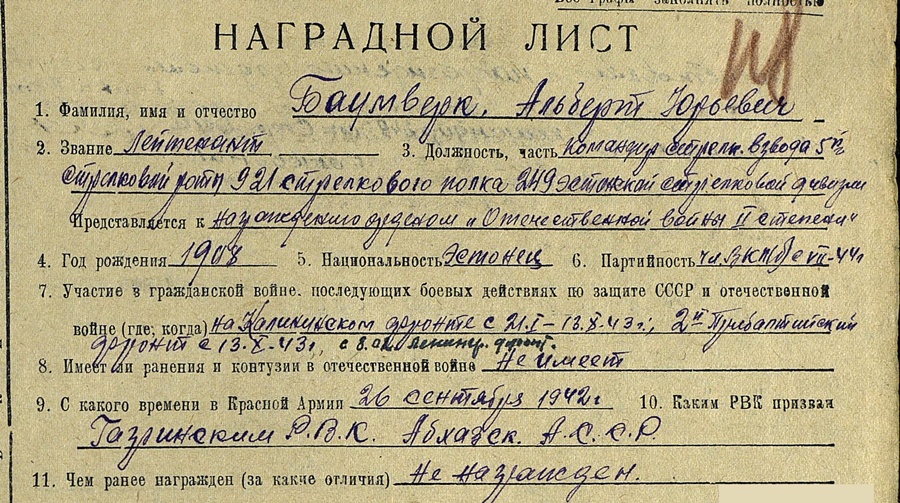 Все графы заполнять полностью
НАГРАДНОЙ ЛИСТ
1. Фамилия, имя и отчество Баумверк, Альберт Юрьевич
2. Звание Лейтенант 3. Должность, часть Командир стрелк. взвода 5й
стрелковой роты 921 стрелкового полка 249 эстонской стрелковой дивизии
Представляется к награждению орденом „Отечественной войны II степени“
4. Год рождения 1908 5. Национальность Эстонец 6. Партийность чл. ВКП(б) с VII-44г
7. Участие в гражданской войне, последующих боевых действиях по защите СССР и отечественной
войне (где, когда) на Калининском фронте с 21.I – 13.X-43г; 2й Прибалтийский
фронт с 13.X-43г, с Ленингр. фронт.
8. Имеет ли ранения и контузии в отечественной войне Не имеет
9. С какого времени в Красной Армии 26 сентября 1942г 10. Каким РВК призван
Р.В.К. Абхазск. А.С.С.Р.
11. Чем ранее награжден (за какие отличия) Не награжден.